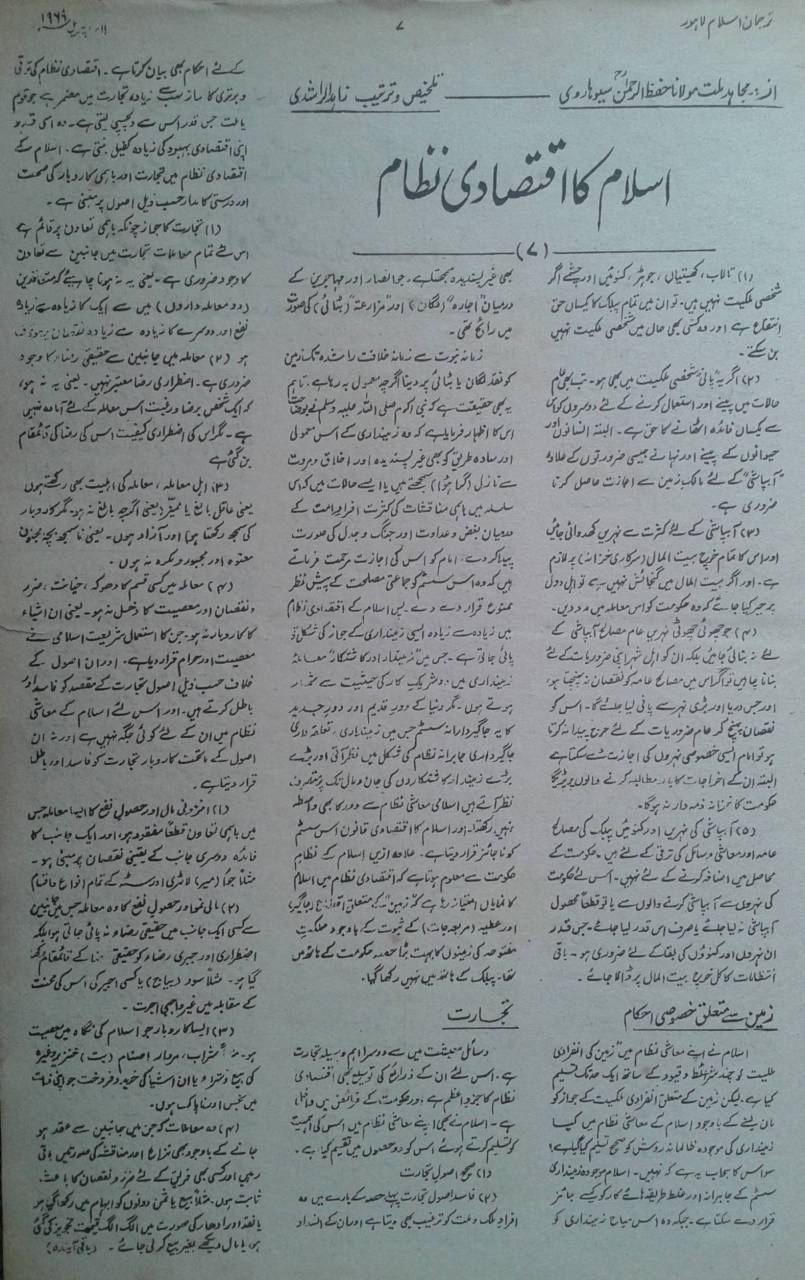 ترجمان اسلام لاہور
۷
۱۱ اپریل ۱۹۶۹
از: مجاہد ملت مولانا حفظ الرحمٰن سیوہاروی
تلخیص و ترتیب زاہد الراشدی
اسلام کا اقتصادی نظام
(۷)
(۱) تالاب، کھیتیاں، جوہڑ، کنوئیں اور چشمے اگر
شخصی ملکیت نہیں ہیں۔ تو ان میں تمام پبلک کا یکساں حق
انتفاع ہے اور وہ کسی بھی حال میں شخصی ملکیت نہیں
بن سکتے۔
(۲) اگر یہ پانی شخصی ملکیت میں بھی ہو۔ تب بھی عام
حالات میں پینے اور استعمال کرنے کے لئے دوسروں کو اس
سے یکساں فائدہ اٹھانے کا حق ہے۔ البتہ انسانوں اور
حیوانوں کے پینے اور نہانے جیسی ضرورتوں کے علاوہ
آبپاشی کے لئے مالک زمین سے اجازت حاصل کرنا
ضروری ہے۔
(۳) آبپاشی کے لئے کثرت سے نہریں کھدوائی جائیں
اور اس کا تمام خرچ بیت المال (سرکاری خزانہ) پر لازم
ہے۔ اور اگر بیت المال میں گنجائش نہیں ہے تو اہل دول
پر جبر کیا جائے کہ وہ حکومت کو اس معاملہ میں مدد دیں۔
(۴) جو چھوٹی چھوٹی نہریں عام مصالح آبپاشی کے
لئے نہ بنائی جائیں بلکہ ان کو اہل شہر اپنی ضروریات کے لئے
بنانا چاہیں تو اگر اس میں مصالح عامہ کو نقصان نہ پہنچتا ہو
اور جس دریا اور بڑی نہر سے پانی لیا جائے گا۔ اس کو
نقصان پہنچ کر عام ضروریات کے لئے حرج پیدا نہ کرتا
ہو تو امام ایسی خصوصی نہروں کی اجازت دے سکتا ہے
البتہ ان کے اخراجات کا بار مطالبہ کرنے والوں پر پڑیگا
حکومت کا خزانہ ذمہ دار نہ ہوگا۔
(۵) آبپاشی کی نہریں اور کنوئیں پبلک کی مصالح
عامہ اور معاشی وسائل کی ترقی کے لئے ہیں۔ حکومت کے
محاصل میں اضافہ کرنے کے لئے نہیں۔ اس لئے حکومت
کی نہروں سے آبپاشی کرنے والوں سے یا تو قطعاً محصول
آبپاشی نہ لیا جائے یا صرف اس قدر لیا جائے۔ جس قدر
ان نہروں اور کنوؤں کی بقا کے لئے ضروری ہو۔ باقی
انتظامات کا کل خرچ بیت المال پر ڈالا جائے۔
زمین سے متعلق خصوصی احکام
اسلام نے اپنے معاشی نظام میں زمین کی انفرادی
ملکیت کو چند شرائط و قیود کے ساتھ ایک حد تک تسلیم
کیا ہے۔ لیکن زمین کے متعلق انفرادی ملکیت کے جواز کو
مان لینے کے باوجود اسلام کے معاشی نظام میں کیا
زمینداری کی موجودہ ظالمانہ روش کو صحیح تسلیم کیا گیا ہے؟
سو اس کا جواب یہ ہے کہ نہیں۔ اسلام موجودہ زمینداری
سسٹم کے جابرانہ اور غلط طریقہ ہائے کار کو کیسے جائز
قرار دے سکتا ہے۔ جبکہ وہ اس مباح زمینداری کو
بھی غیر پسندیدہ سمجھتا ہے۔ جو انصار اور مہاجرین کے
درمیان اجارہ (لگان) اور مزارعۃ (بٹائی) کی صورت
میں رائج تھی۔
زمانہ نبوت سے زمانہ خلافت راشدہ تک زمین
کو نقد لگان یا بٹائی پر دینا اگرچہ معمول بہ رہا ہے۔ تاہم
یہ بھی حقیقت ہے کہ نبی اکرم صلی اللہ علیہ وسلم نے بوضاحت
اس کا اظہار فرمایا ہے کہ وہ زمینداری کے اس معمولی
اور سادہ طریق کو بھی غیر پسندیدہ اور اخلاق و مروت
سے نازل (گرا ہوا) سمجھتے ہیں یا ایسے حالات میں کہ اس
سلسلہ میں باہمی مناقشات کی کثرت افراد امت کے
درمیان بغض و عداوت اور جنگ و جدل کی صورت
پیدا کر دے۔ امام کو اس کی اجازت مرحمت فرماتے
ہیں کہ وہ اس سسٹم کو جماعتی مصلحت کے پیش نظر
ممنوع قرار دے دے۔ پس اسلام کے اقتصادی نظام
میں زیادہ سے زیادہ ایسی زمینداری کے جواز کی شکل تو
پائی جاتی ہے۔ جس میں زمیندار اور کاشتکار معاملۂ
زمینداری میں دو شریک کار کی حیثیت سے شمار
ہوتے ہوں۔ مگر دنیا کے دور قدیم اور دور جدید
کا یہ جاگیردارانہ سسٹم جس میں زمینداری، تعلقہ داری
جاگیرداری جابرانہ نظام کی شکل میں نظر آتی اور بڑے
بڑے زمیندار کاشتکاروں کی جان و مال تک پر متصرف
نظر آتے ہیں اسلامی معاشی نظام سے دور کا بھی واسطہ
نہیں رکھتا۔ اور اسلام کا اقتصادی قانون اس سسٹم
کو ناجائز قرار دیتا ہے۔ علاوہ ازیں اسلام کے نظام
حکومت سے معلوم ہوتا ہے کہ اقتصادی نظام میں اسلام
کا نمایاں امتیاز رہا ہے کہ زمین کے متعلق اقطاع (جاگیر)
اور عطیہ (مربعہ جات) کے ثبوت کے باوجود مملکت
مفتوحہ کی زمینوں کا بہت بڑا حصہ حکومت کے ہاتھ میں
تھا۔ پبلک کے ہاتھ میں نہیں رکھا گیا۔
تجارت
وسائل معیشت میں سے دوسرا اہم وسیلہ تجارت
ہے۔ اس لئے ان کے ذرائع کی توسیع بھی اقتصادی
نظام کا جزو اعظم ہے اور حکومت کے فرائض میں داخل
ہے۔ اسلام نے بھی اپنے معاشی نظام میں اس کی اہمیت
کو تسلیم کرتے ہوئے اس کو دو حصوں میں تقسیم کیا ہے۔
(۱) صحیح اصول تجارت
(۲) فاسد اصول تجارت پہلے حصہ کے بارے میں وہ
افراد ملک و ملت کو ترغیب بھی دیتا ہے اور ان کے انسداد
کے لئے احکام بھی بیان کرتا ہے۔ اقتصادی نظام کی ترقی
و برتری کا راز سب سے زیادہ تجارت میں مضمر ہے جو قوم
یا ملت جس قدر اس سے دلچسپی لیتی ہے۔ وہ اسی قدر
اپنی اقتصادی بہبود کی زیادہ کفیل بنتی ہے۔ اسلام کے
اقتصادی نظام میں تجارت اور باہمی کاروبار کی صحت
اور درستی کا مدار حسب ذیل اصول پر مبنی ہے۔
(۱) تجارت کا جواز چونکہ باہمی تعاون پر قائم ہے
اس لئے تمام معاملات تجارت میں جانبین سے تعاون
کا وجود ضروری ہے۔ یعنی یہ نہ ہونا چاہیے کہ متعاقدین
(دو معاملہ داروں) میں سے ایک کا زیادہ سے زیادہ
نفع اور دوسرے کا زیادہ سے زیادہ نقصان پر موقوف
ہو (۲) معاملہ میں جانبین سے حقیقی رضا کا وجود
ضروری ہے۔ اضطراری رضا معتبر نہیں۔ یعنی یہ نہ ہو،
کہ ایک شخص برضا و رغبت اس معاملہ کے لئے آمادہ نہیں
ہے۔ مگر اس کی اضطراری کیفیت اس کی رضا کی قائمقام
بن گئی ہے
(۳) اہل معاملہ، معاملہ کی اہلیت بھی رکھتے ہوں
یعنی عاقل بالغ یا ممیز (یعنی اگرچہ بالغ نہ ہو۔ مگر کاروبار
کی سمجھ رکھتا ہو) اور آزاد ہوں۔ یعنی ناسمجھ بچہ، مجنون
معتوہ اور مجبور و مکرہ نہ ہوں۔
(۴) معاملہ میں کسی قسم کا دھوکہ، خیانت، ضرر
و نقصان اور معصیت کا دخل نہ ہو۔ یعنی ان اشیاء
کا کاروبار نہ ہو۔ جن کا استعمال شریعت اسلامی نے
معصیت اور حرام قرار دیا ہے۔ اور ان اصول کے
خلاف حسب ذیل اصول تجارت کے مقصد کو فاسد اور
باطل کرتے ہیں۔ اور اس لئے اسلام کے معاشی
نظام میں ان کے لئے کوئی جگہ نہیں ہے اور نہ ان
اصول کے ماتحت کاروبار تجارت کو فاسد اور باطل
قرار دیتا ہے۔
(۱) افزونی مال اور حصول نفع کا ایسا معاملہ جس
میں باہمی تعاون قطعاً مفقود ہو، اور ایک جانب کا
فائدہ دوسری جانب کے یقینی نقصان پر مبنی ہو۔
مثلاً جوا (میسر) لاٹری اور سٹہ کے تمام انواع و اقسام
(۲) مالی نفع اور حصول نفع کا وہ معاملہ جس میں جانبین
سے کسی ایک جانب میں حقیقی رضا نہ پائی جاتی ہو بلکہ
اضطراری اور جبری رضا کو حقیقی رضا کے قائمقام رکھا
گیا ہو۔ مثلاً سود (بیاج) یا کسی اجیر کی اس کی محنت
کے مقابلہ میں غیر واجبی اجرت۔
(۳) ایسا کاروبار جو اسلام کی نگاہ میں معصیت
ہو۔ مثلاً شراب، مردار اصنام (بت) خنزیر وغیرہ
کی بیع و شراء یا ان اشیا کی خرید و فروخت جو اپنی ذات
میں نجس اور ناپاک ہوں۔
(۴) وہ معاملات کہ جن میں جانبین سے عقد ہو
جانے کے باوجود بھی نزاع اور مناقشہ کی صورتیں باقی
رہیں اور کسی بھی فریق کے لئے ضرر و نقصان کا باعث
ثابت ہوں۔ مثلاً بیع یا ثمن دونوں کو ابہام میں رکھا گیا ہو
یا نقد اور ادھار کی صورت میں الگ الگ قیمت تجویز کی گئی
ہو، یا مال دیکھے بغیر بیع کر لی جائے۔ (باقی آئندہ)